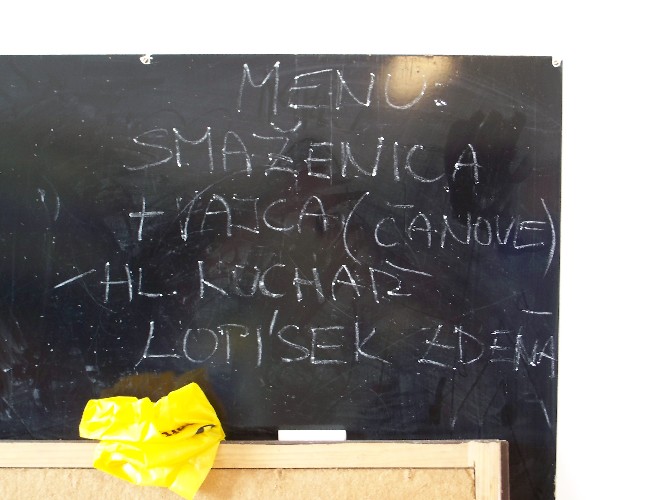 MENU:
SMAŽENICA
+ VAJCA (ČANOVE)
- HL. KUCHAR -
LOPÍSEK ZDEŇA